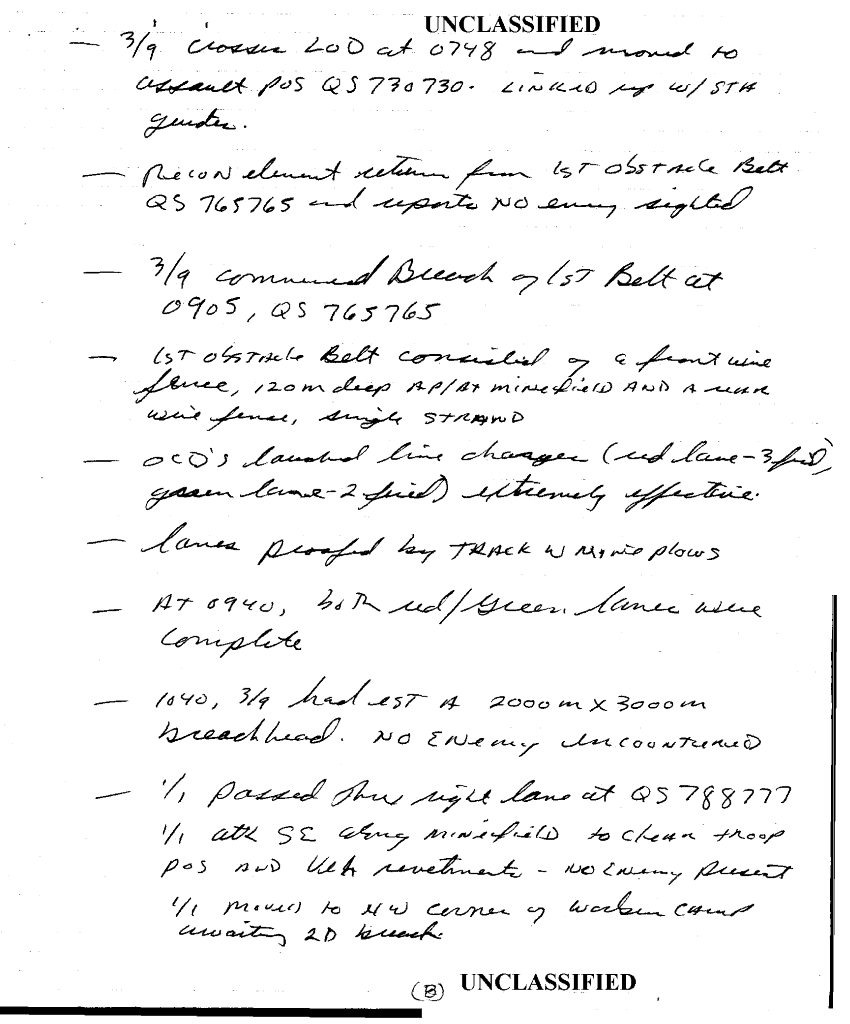 UNCLASSIFIED
— 3/9 crosses LOD at 0748 and moved to
assault pos QS 730730. LINKED up w/ 5TH
— Recon element return from 1ST Obstacle Belt
QS 765765 and reports NO enemy sighted
— 3/9 commenced Breach of 1ST Belt at
0905, QS 765765
— 1ST Obstacle Belt consisted of a front wire
fence, 120m deep AP/AT minefield AND A rear
wire fense, single STRAND
— launched line charges (red lane-3 fired,
green lane-2 fired) extremely effective.
— lanes proofed by TRACK W Mine plows
— At 0940, both red/Green lanes were
Complete
— 1040, 3/9 had EST A 2000m X 3000m
breachhead. NO ENemy encountered
— 1/1 passed thru right lane at QS 788777
1/1 atk SE along minefield to clear troop
pos AND Veh revetments - NO Enemy Present
1/1 moved to NW corner of worker camp
awaiting 2D breach.
(B) UNCLASSIFIED